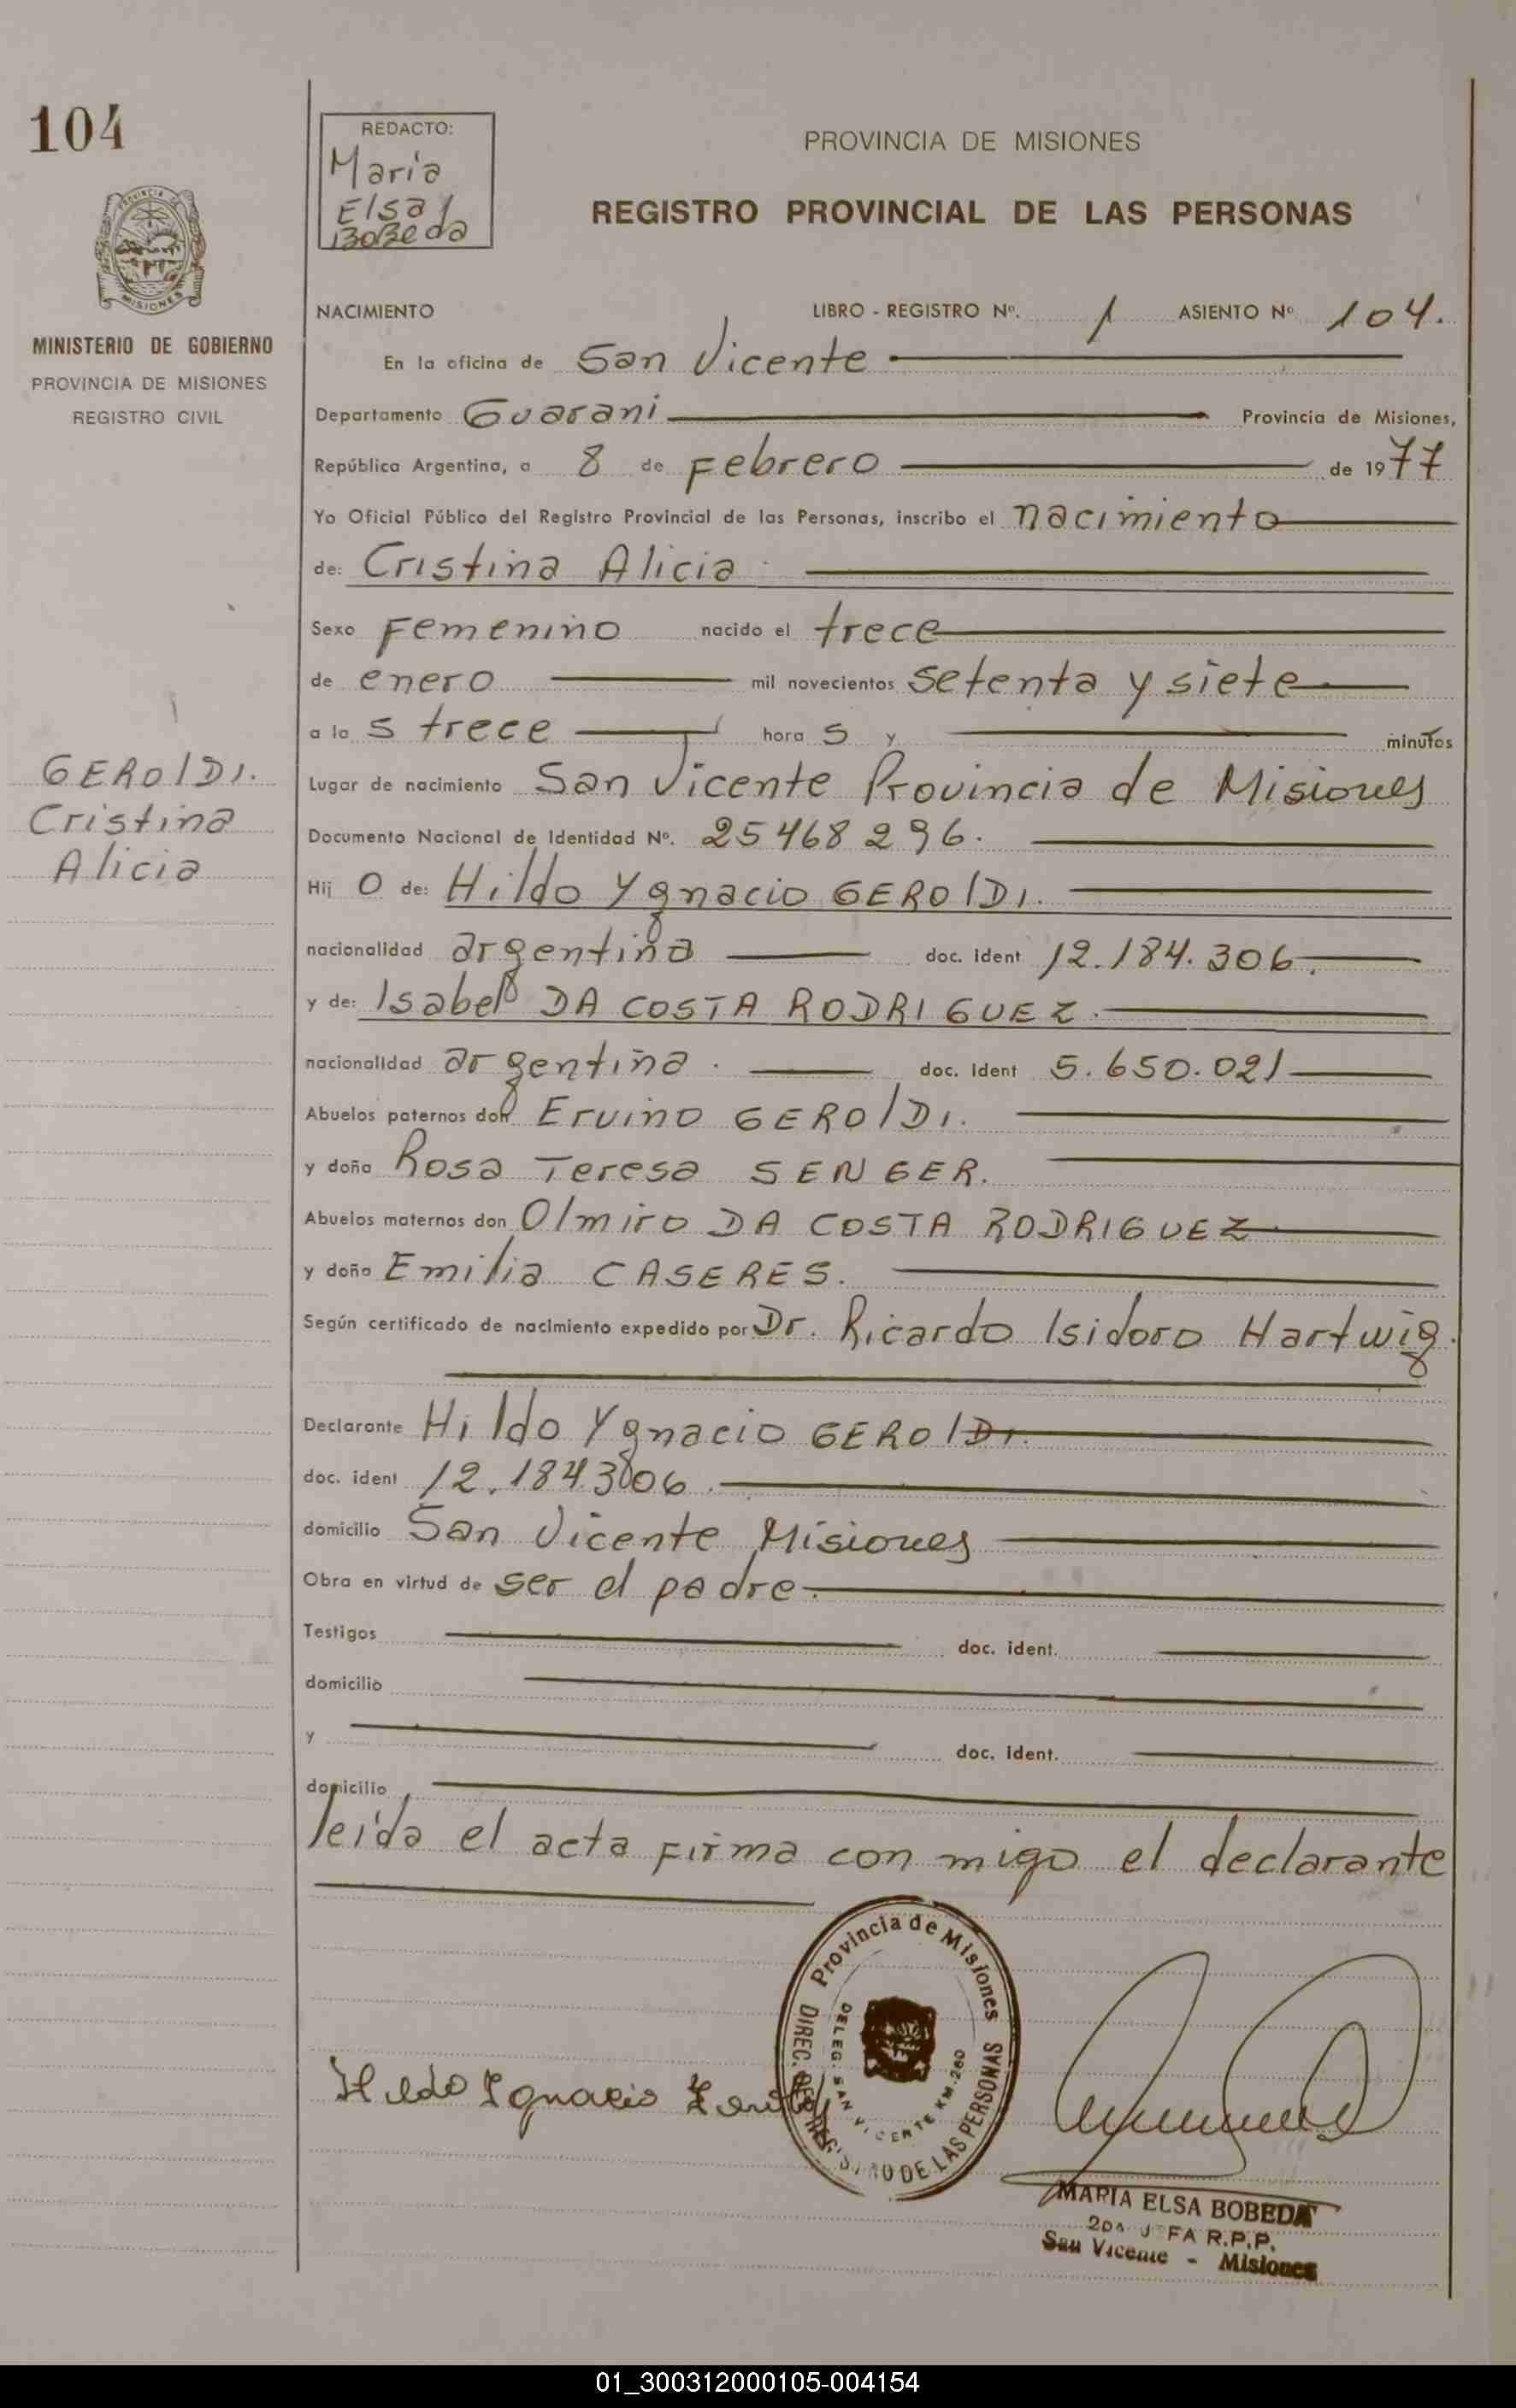 104
REDACTO:
Maria
Elsa
BoBeda
PROVINCIA DE MISIONES
REGISTRO PROVINCIAL DE LAS PERSONAS
PROVINCIA DE
MISIONES
MINISTERIO DE GOBIERNO
PROVINCIA DE MISIONES
REGISTRO CIVIL
NACIMIENTO LIBRO - REGISTRO Nº. 1 ASIENTO Nº 104.
En la oficina de San Vicente
Departamento Guarani Provincia de Misiones,
República Argentina, a 8 de Febrero de 1977
Yo Oficial Público del Registro Provincial de las Personas, inscribo el nacimiento
de: Cristina Alicia
Sexo Femenino nacido el trece
de enero mil novecientos setenta y siete
a las trece horas y minutos
Lugar de nacimiento San Vicente Provincia de Misiones
GEROlDI.
Cristina
Alicia
Documento Nacional de Identidad Nº. 25468296.
Hij O de: Hildo Ygnacio GEROlDI.
nacionalidad argentina doc. ident 12.184.306.
y de: Isabel DA COSTA RODRIGUEZ.
nacionalidad argentina. doc. ident 5.650.021
Abuelos paternos don Ervino GEROlDI.
y doña Rosa Teresa SENGER.
Abuelos maternos don Olmiro DA COSTA RODRIGUEZ
y doña Emilia CASERES.
Según certificado de nacimiento expedido por Dr. Ricardo Isidoro Hartwig.
Declarante Hildo Ygnacio GEROlDI.
doc. ident 12.184306.
domicilio San Vicente Misiones
Obra en virtud de ser el padre.
Testigos doc. ident.
domicilio
y doc. ident.
domicilio
leida el acta firma con migo el declarante
Provincia de Misiones
DIREC. DEL REGISTRO DE LAS PERSONAS
DELEG. SAN VICENTE KM. 260
Hildo Ignacio
MARIA ELSA BOBEDA
2DA JEFA R.P.P.
San Vicente - Misiones
01_300312000105-004154